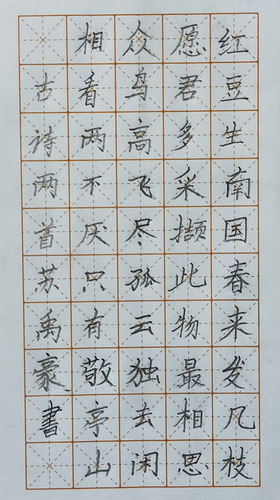 红豆生南国春来发凡枝
愿君多采撷此物最相思
众鸟高飞尽孤云独去闲
相看两不厌只有敬亭山
古诗两首苏禹豪書